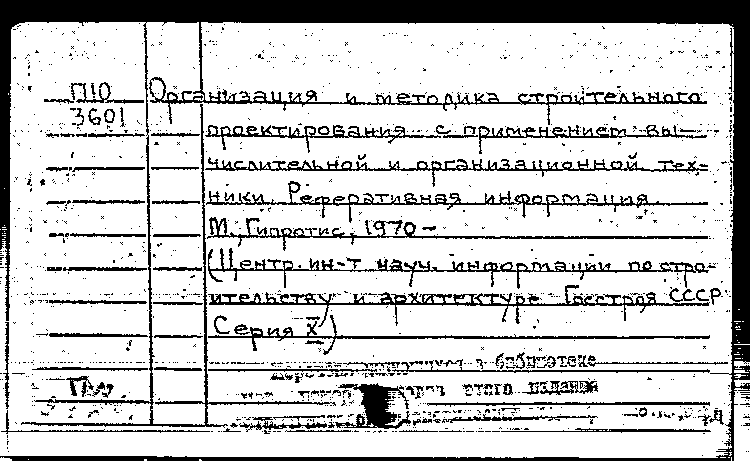 П10 Организация и методика строительного
3601 проектирования с применением вы-
числительной и организационной тех-
ники. Реферативная информация.
М., Гипротис, 1970-
(Центр. ин-т науч. информации по стро-
ительству и архитектуре Госстроя СССР
Серия X)
в библиотеке
этого издания